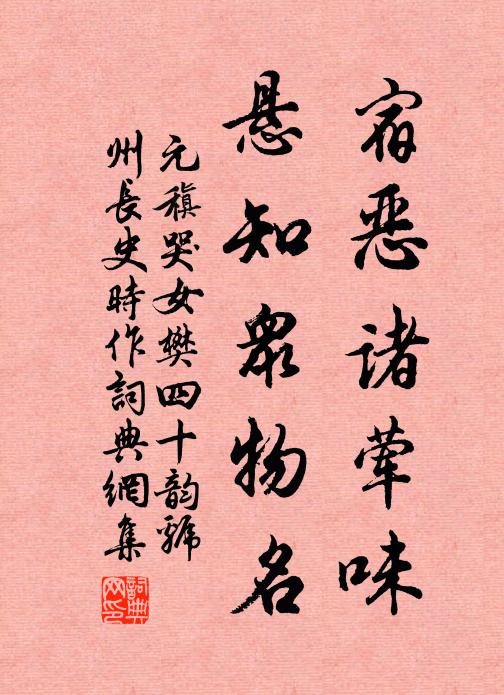 宿恶诸荤味
悬知众物名
元稹哭女樊四十韵虢
州长史時作詞典網集
詞典网印